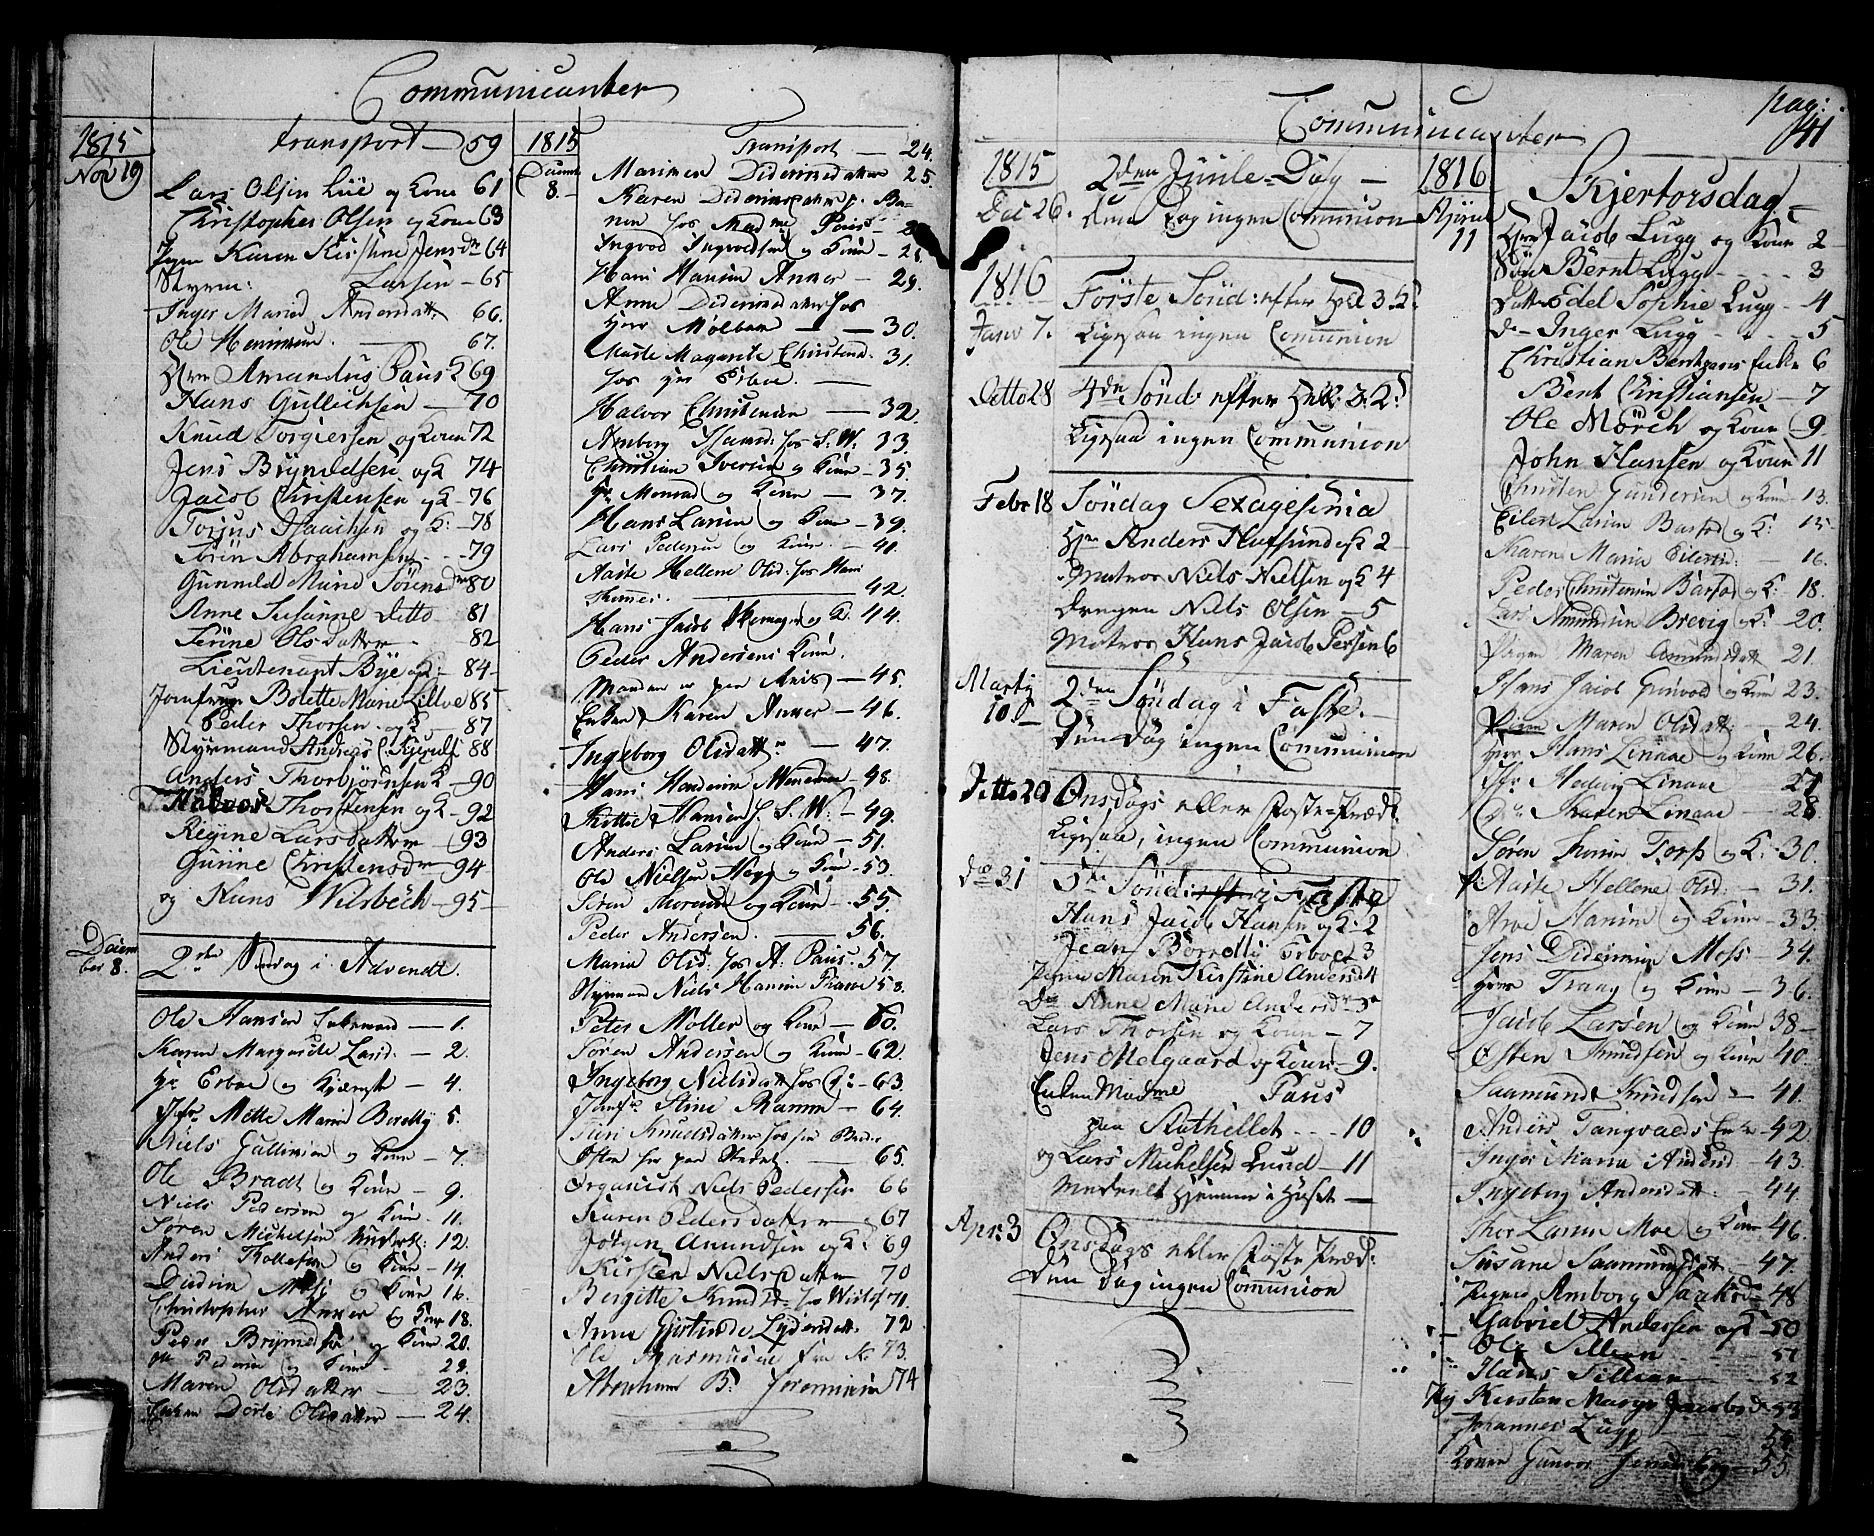 Communicanter
1815
Nov 19
transport 59
Lars Olsen Lie og Kone 61
Christopher Olsen og Kone 63
Karen Kirstine Jensdr 64
Larsen 65
Inger Maria Andersdatt: 66.
Ole 67.
Hrr Amandus Paus 69
Hans Gullichsen 70
Knud Torgiersen og Kone 72
Jens Brynildsen og K 74
Jacob Christensen og K 76
Torjus Isaachsen og K: 78
Sörin Abrahamsen 79
Gunnild Marie Sörensdr 80
Anne Susanne Ditto 81
Serine Olsdatter 82
Lieutenant Bye og K: 84
Jomfrue Bolette Marie 85
Peder Thorsen og K 87
Styrmand Andreas 88
Anders Thorbjörnsen K 90
Halvor Thorstensen og K 92
Regine Larsdatter 93
Gurine Christensdr 94
og Hans Wilsbech 95
Decem
ber 8.
2den Söndag i Advendt.
Ole Hansen Enkemand 1.
Karen Margarete Larsd. 2.
Hr Erboe og Kjæreste 4.
Jfr Mette Marie Borelly 5.
Niels og Kone 7.
Ole Bradt og Kone 9.
Niels Pedersen og Kone 11.
Sören Michelsen 12.
Anders Thollefsen og Kone 14.
og Kone 16.
Christopher Anker og Kone 18.
Peder Brynildsen og Kone 20.
Ole Pedersen og Kone 22.
Maren Olsdatter 23.
Enken Dorte Olsdatter 24.
1815
Decemb
8.
Transport 24.
Maren Dideriksdatter 25.
Karen Dideriksdatter
hos Madme Paus
Ingvod Ingvodsen og Kone 28.
Hans Hansen Anker 29.
Anne Dideriksdatter hos
Herr Mølbach 30.
Margarete Christensd. 31.
hos Hr Erboe.
Halvor Christensen 32.
Amborg Isaacsd. hos S. W. 33.
Christian Iversen og Kone 35.
Hr Monrad og Kone 37.
Hans Larsen og Kone 39.
Lars Pedersen og Kone 41.
Aaste Hellene Olsd. hos Hans
42.
Hans Jacob og K. 44.
Peder Andersens Kone.
Manden er paa Reis 45.
Enken Karen Anker 46.
Ingeborg Olsdattr 47.
Hans Henderik 48.
Hansen h. S. W. 49.
Anders Larsen og Kone 51.
Ole Nielsen og Kone 53.
Sören og Kone 55.
Peder Andersen. 56.
Maria Olsd. hos A. Paus 57.
Styrmand Niels Hansen 58.
Peter Moller og Kone 60.
Sören Andersen og Kone 62.
Ingeborg Nielsdatt hos 63.
Jomfr Stine Ramm 64.
Siri Knudsdatter hos
65.
Organist Niels Pedersen 66
Karen Pedersdatter 67
Jörgen Amundsen og K. 69
Kirsten Nielsdatter 70
Bergitte Knudsd. hos 71.
Anne Gjertrude 72
Ole Rasmusen 73.
Abraham B. Jeremiasen 74
Communicanter
pag: 41
1815
Dec 26.
2den Juule-Dag
denne Dag ingen Communion
1816
Janv 7.
Förste Sönd: efter Hel 3 K:
Ligesaa ingen Communion
Ditto 28
4de Sönd: efter Hel: 3: K:
Ligesaa ingen Communion
Febr 18
Söndag Sexagesima
Hrr Anders Hafsund og K 2
Matros Niels Nielsen og K 4
Drengen Niels Olsen 5
Matros Hans Jacob Persen 6
Martij
10
2den Söndag i Faste.
Den Dag ingen Communion
Ditto 20
Onsdags eller Faste-Præd:
Ligesaa, ingen Communion
do 31
5te Sönd: i Faste
Hans Jacob Hansen og K: 2
Jean Borrelly Erboe 3
Maren Kirstine Andersd 4
Do Anne Marie Andersdr 5
Lars Thorsen og Kone 7
Jens Melgaard og Kone 9.
Enken Madme Paus
paa Kathellet 10
og Lars Michelsen Lund 11
Meddeelt Hjemme i Huset
Apr: 3
Onsdags eller Faste Præd:
den Dag ingen Communion
1816
April
11
Skjertorsdag
Hrr Jacob Lugg og Kone 2
Sön Bernt Lugg 3
Datter Edel Sophie Lugg 4
do Inger Lugg 5
Christian 6
Bent Christiansen 7
Ole Mörch og Kone 9
John Hansen og Kone 11
Christen Gundersen og Kone 13.
Eilert Larsen Barfod og K: 15
Karen Maria Eilertsd: 16.
Peder Christensen Barfod og K: 18.
Lars Amundsen Brevig og K: 20.
Pigen Maren Amundsdatt 21.
Hans Jacob og Kone 23.
Pigen Maren Olsdatt: 24.
Herr Hans Linaae og Kone 26.
Jfr: Hedvig Linaae 27
do Karen Linaae 28
Sören Torp og K: 30.
Aaste Hellene Olsd: 31.
Arve Hansen og Kone 33.
Jens Dideriksen Moss 34.
Herr Traag og Kone 36.
Jacob Larsen og Kone 38
Osten Knudsen og Kone 40.
Saamund Knudsen 41.
Anders Tangvalds Enke 42
Inger Maria Andersd 43.
Ingeborg Andersdatt. 44.
Thor Larsen Moe og Kone 46.
Susane Saamundsdatt. 47.
Pigen Amborg Isaksd 48
Gabriel Andersen og K 50
Ole Tellsen 51
Hans Tellsen 52
Pig Kirsten Margr Jacobsd 53
Johannes Lugg 54
Konen Gunvor 55